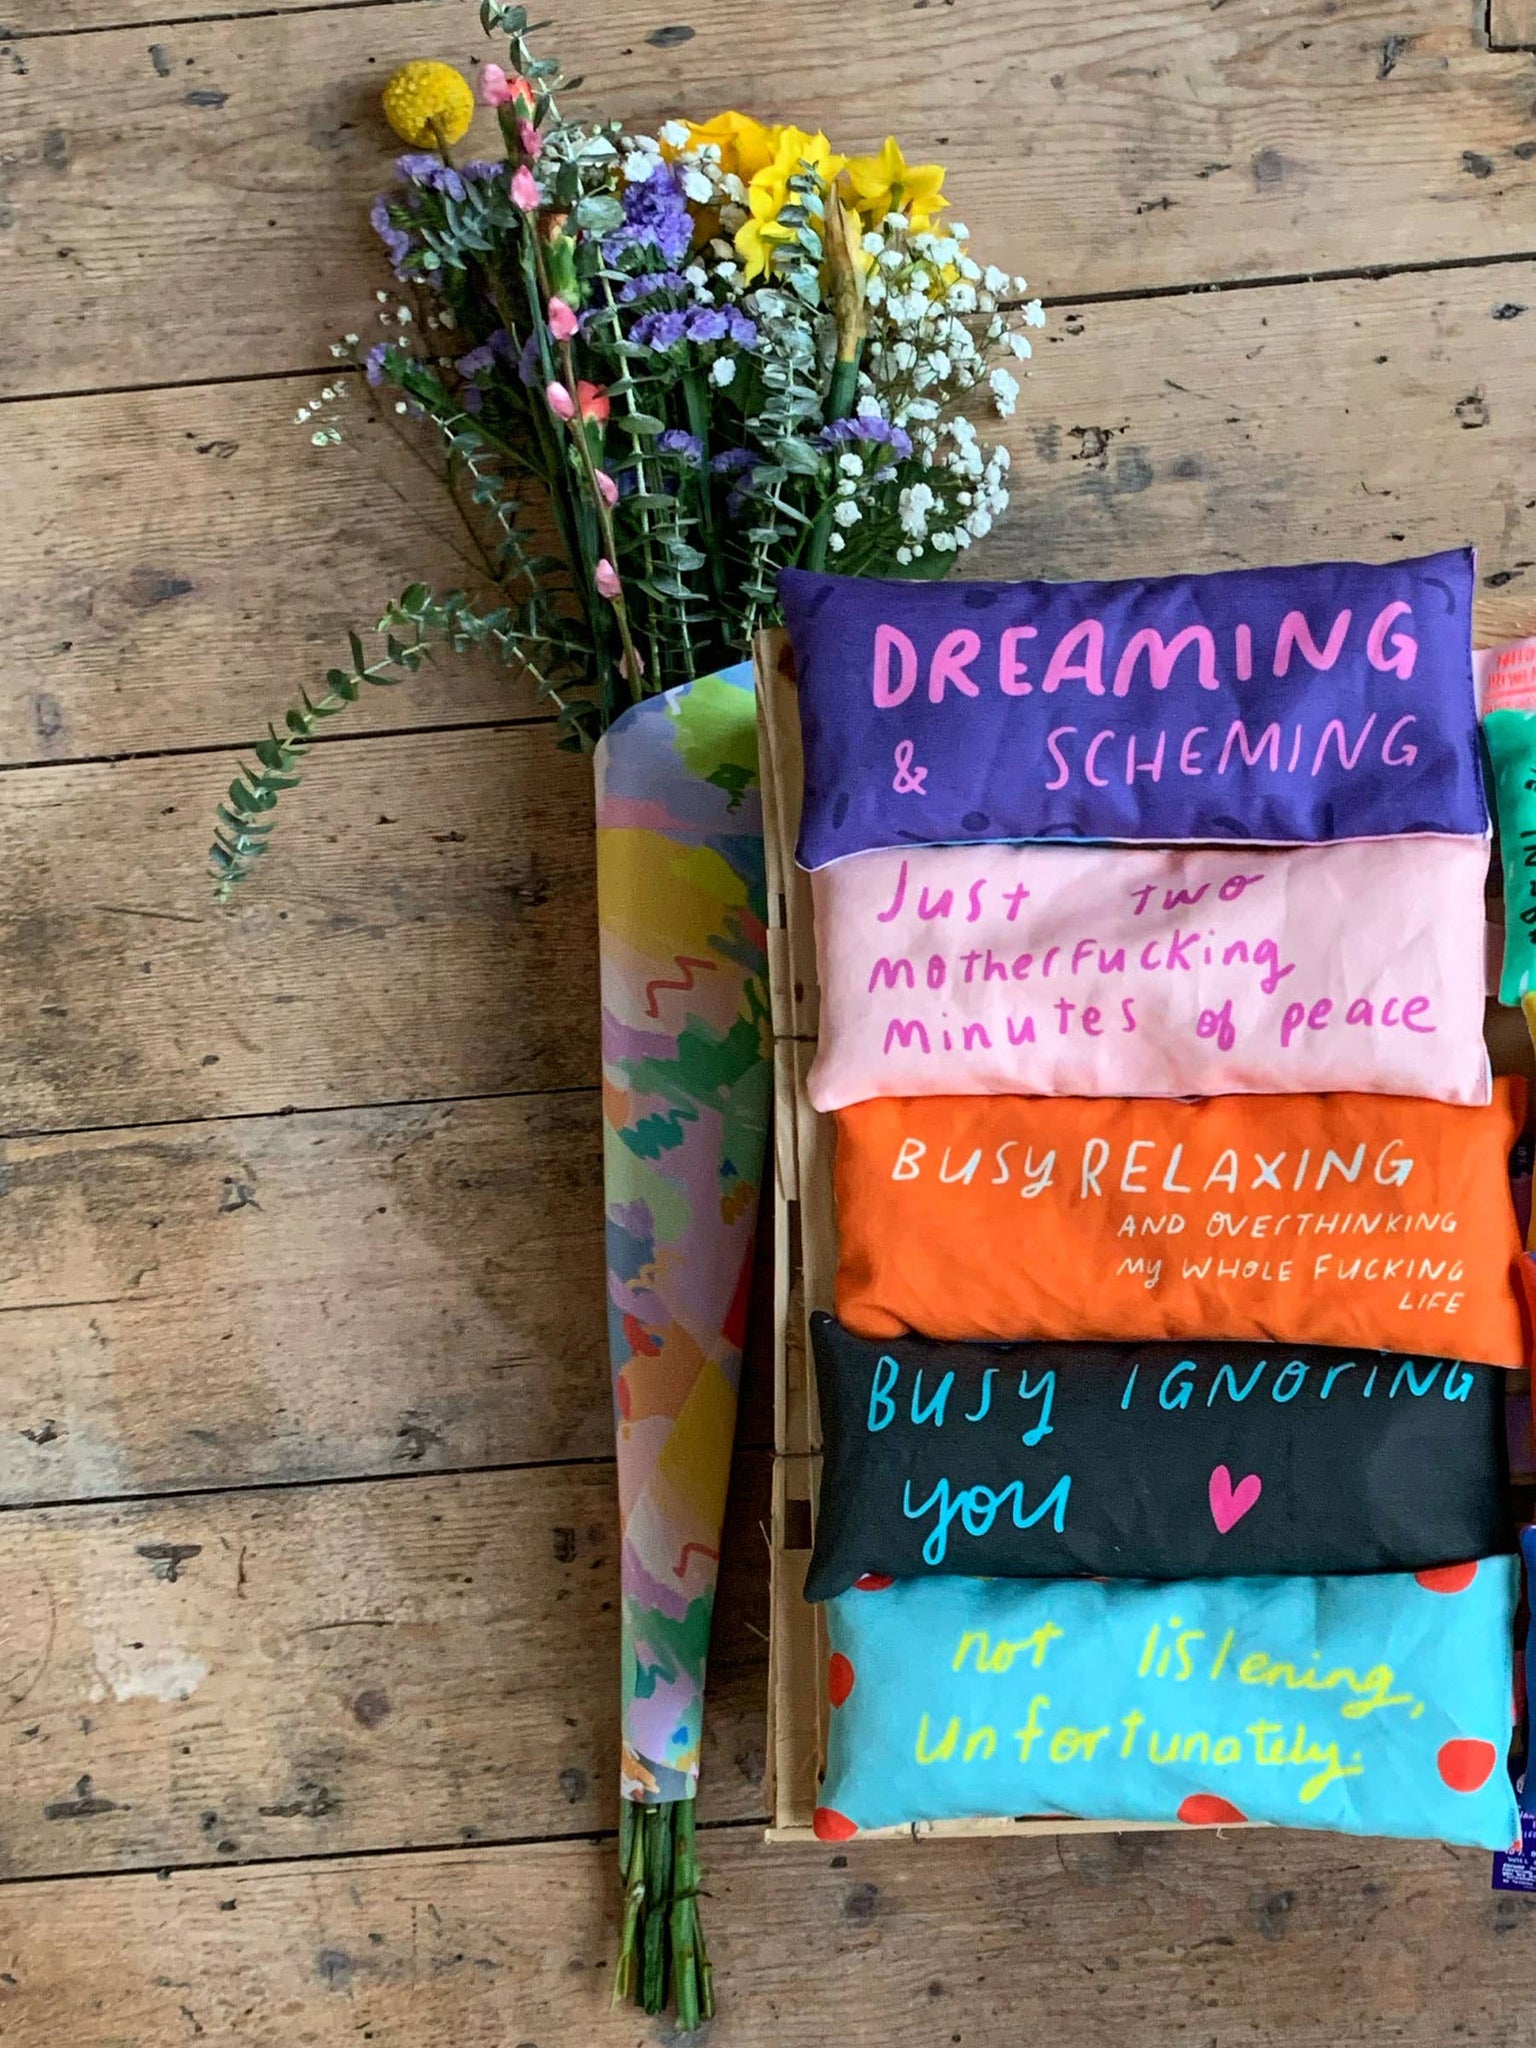 DREAMING
& SCHEMING
Just two
motherfucking
minutes of peace
BUSY RELAXING
AND OVERTHINKING
MY WHOLE FUCKING
LIFE
BUSY IGNORING
you
not listening,
unfortunately.